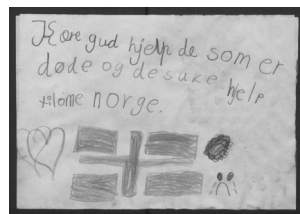 Kære gud hjelp de som er
døde og de suke hjelp
norge.